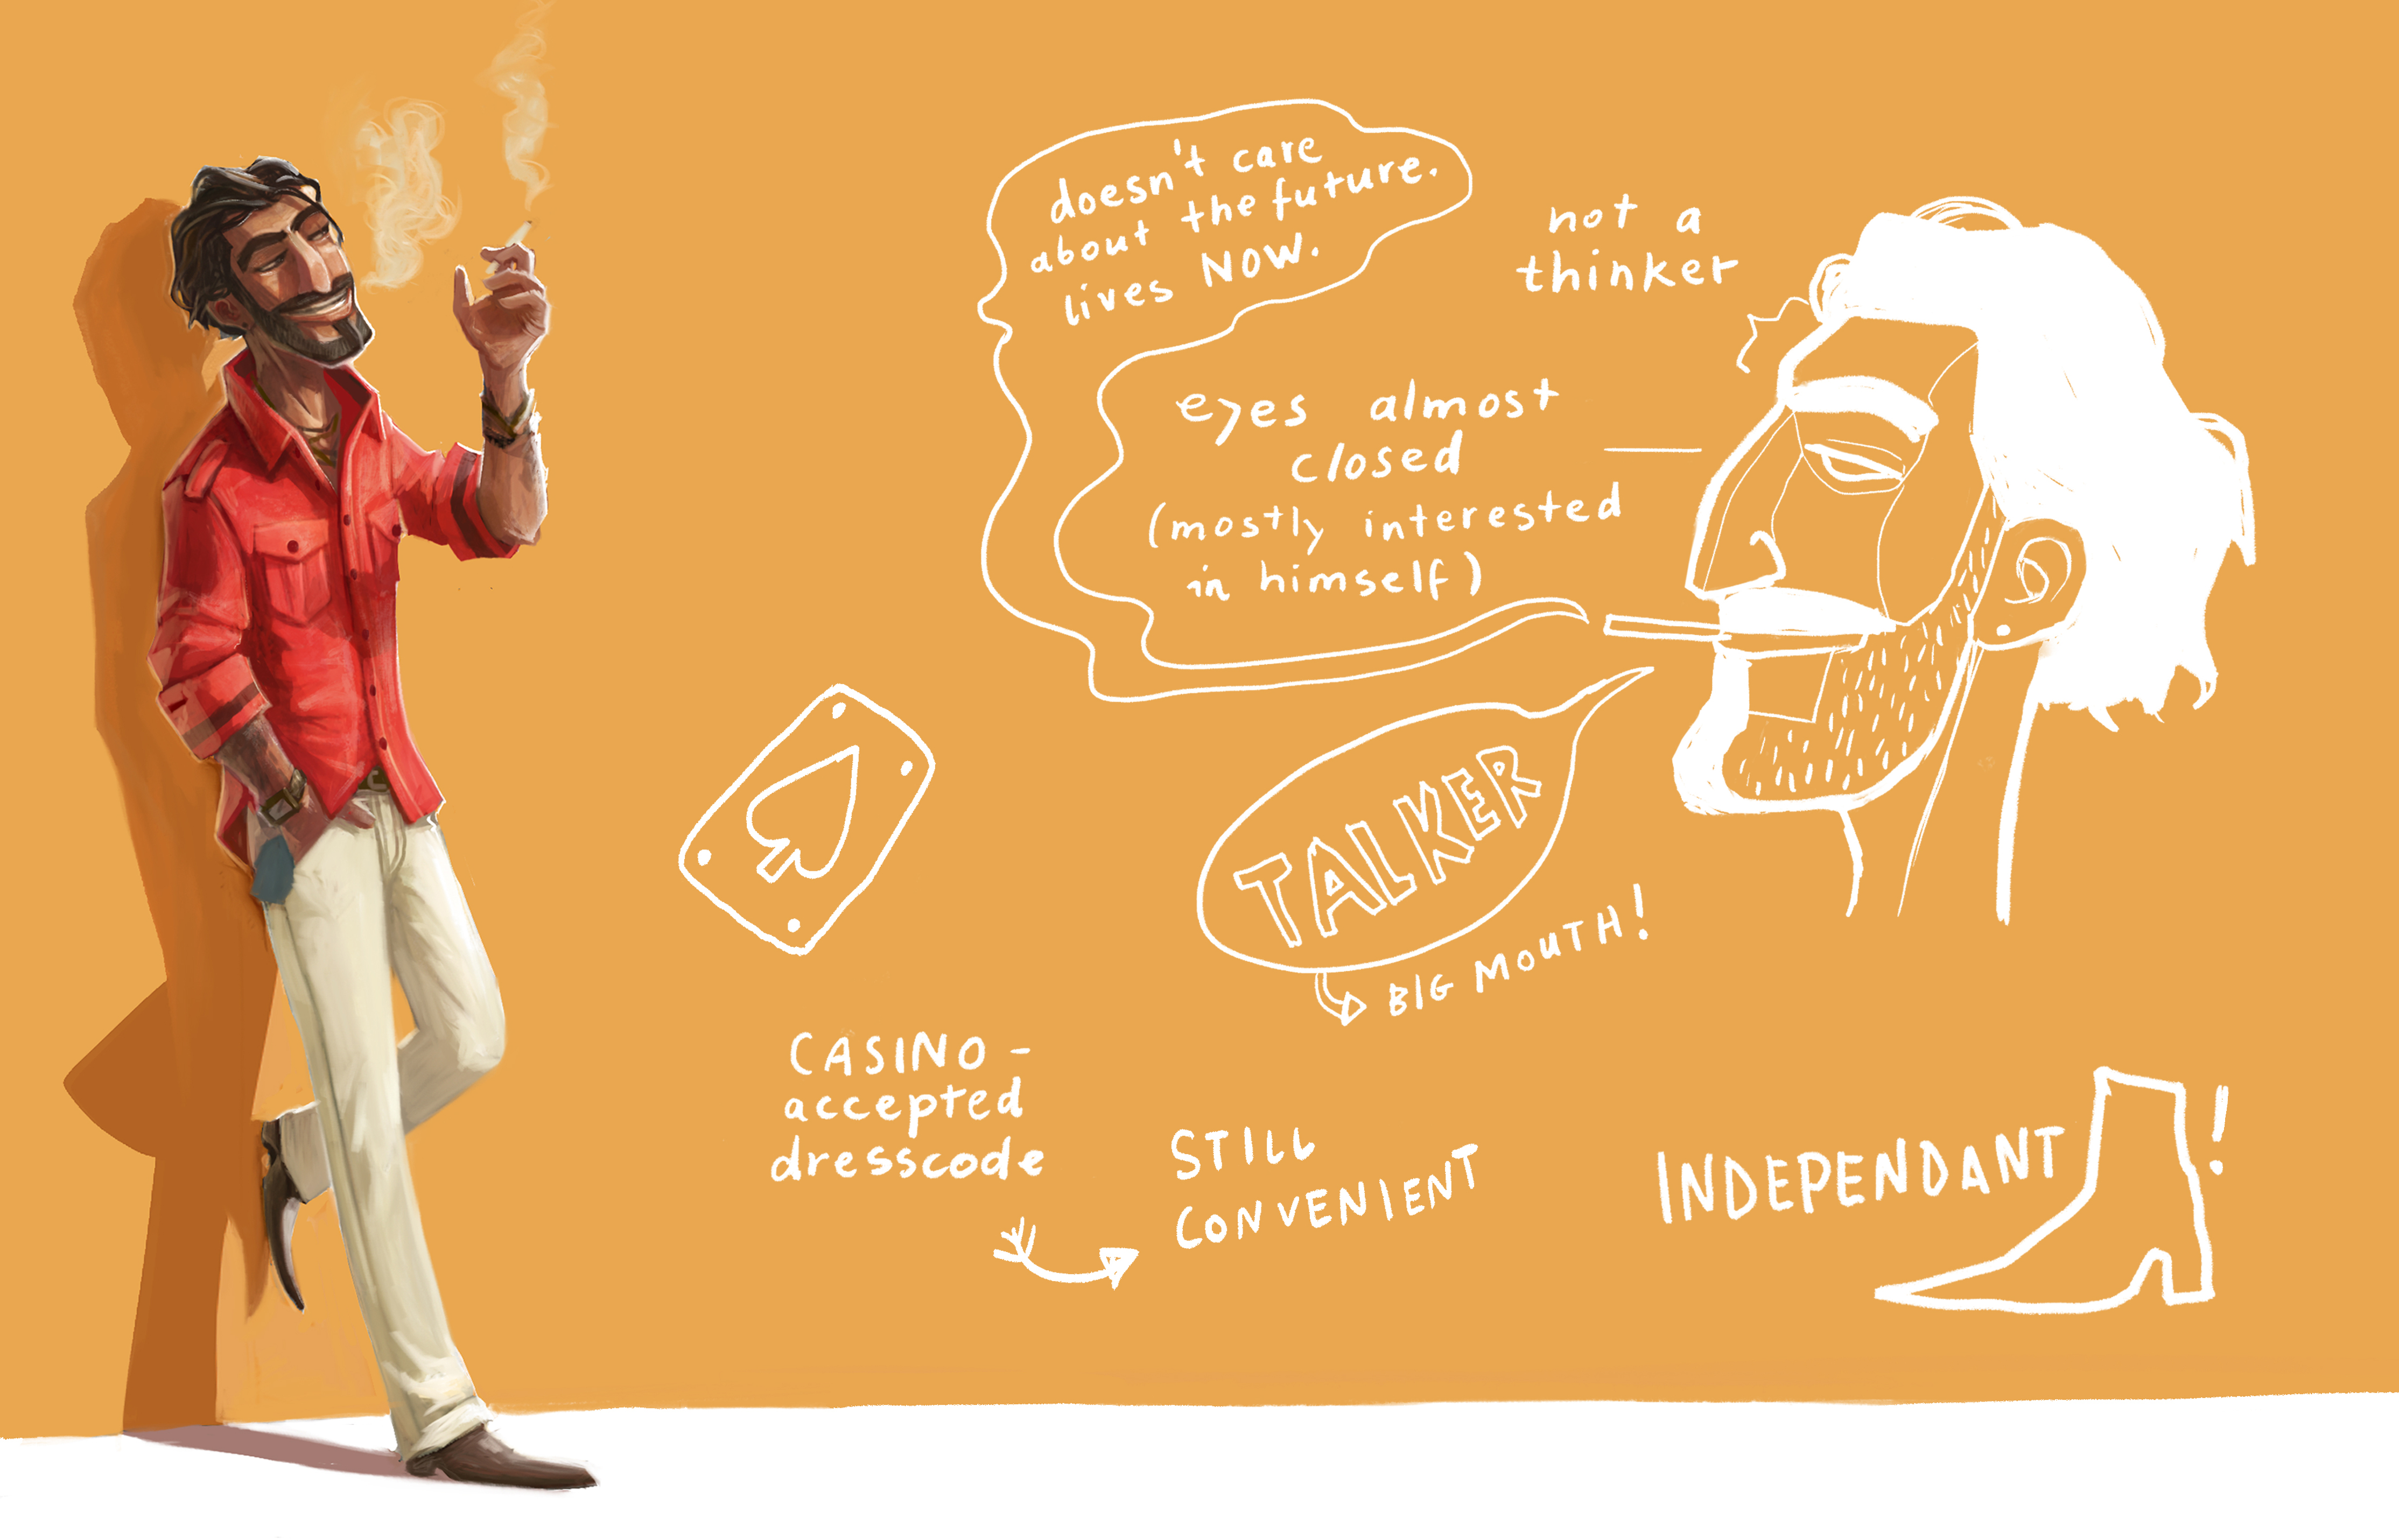 doesn't care
about the future.
lives NOW.
not a
thinker
eyes almost
closed
(mostly interested
in himself)
TALKER
BIG MOUTH!
CASINO-
accepted
dresscode
STILL
CONVENIENT
INDEPENDANT!